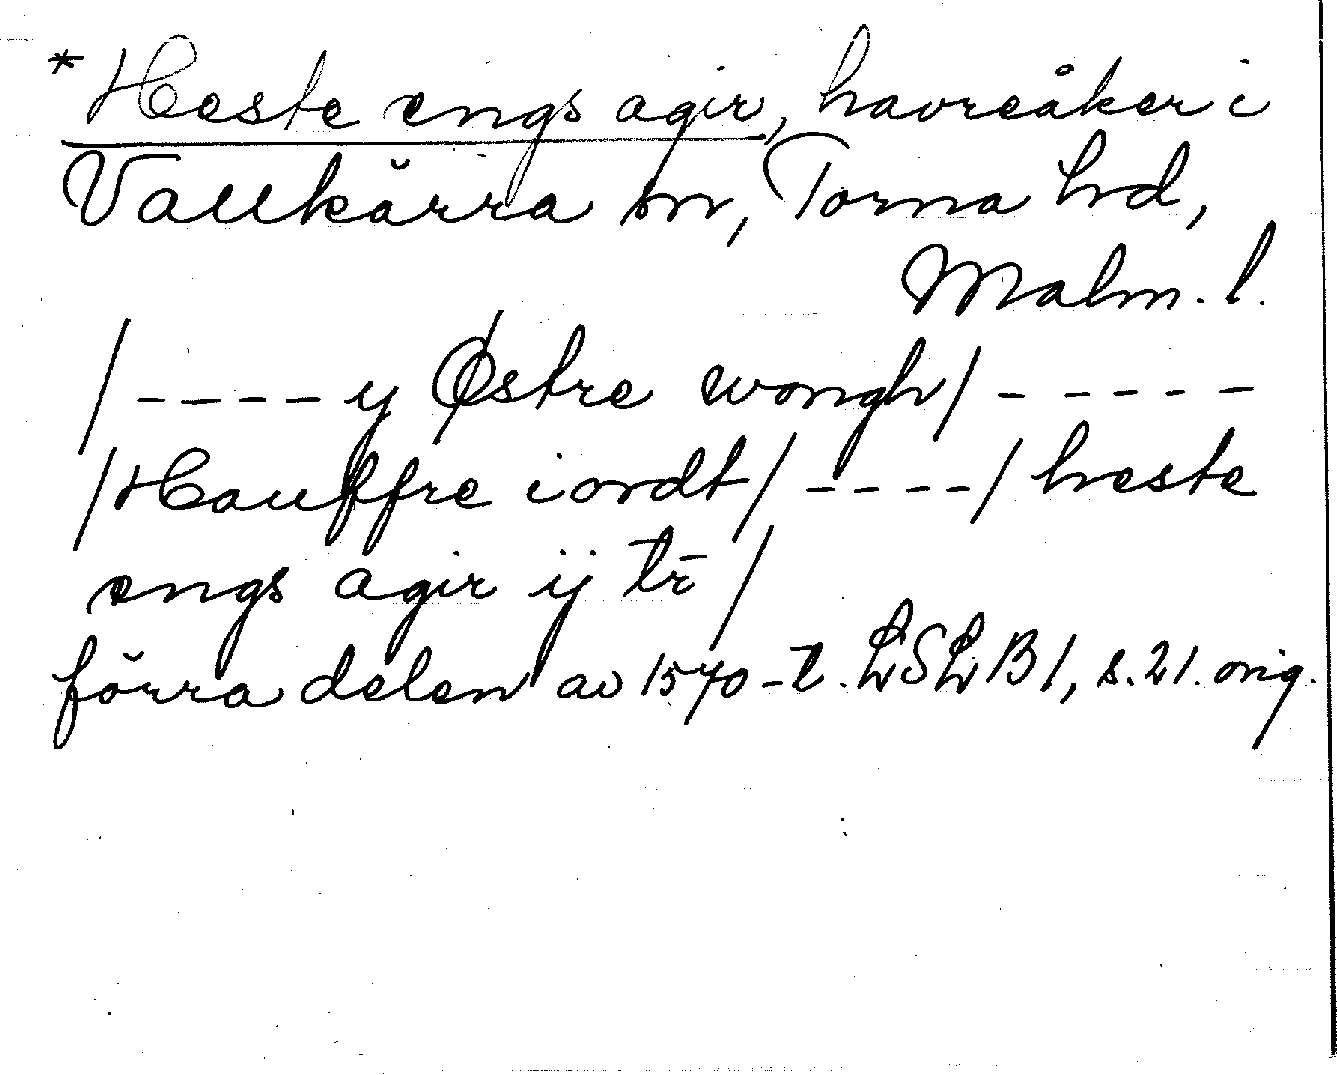 *Heste engs agir, havreåker i
Vallkärra sn, Torna hd,
Malm. l.
/----y Østre wongh/-----
/Hauffre iordt/----/heste
engs agir ij tr̄/
förra delen av 1570-t. LSLB1, s. 21. orig.